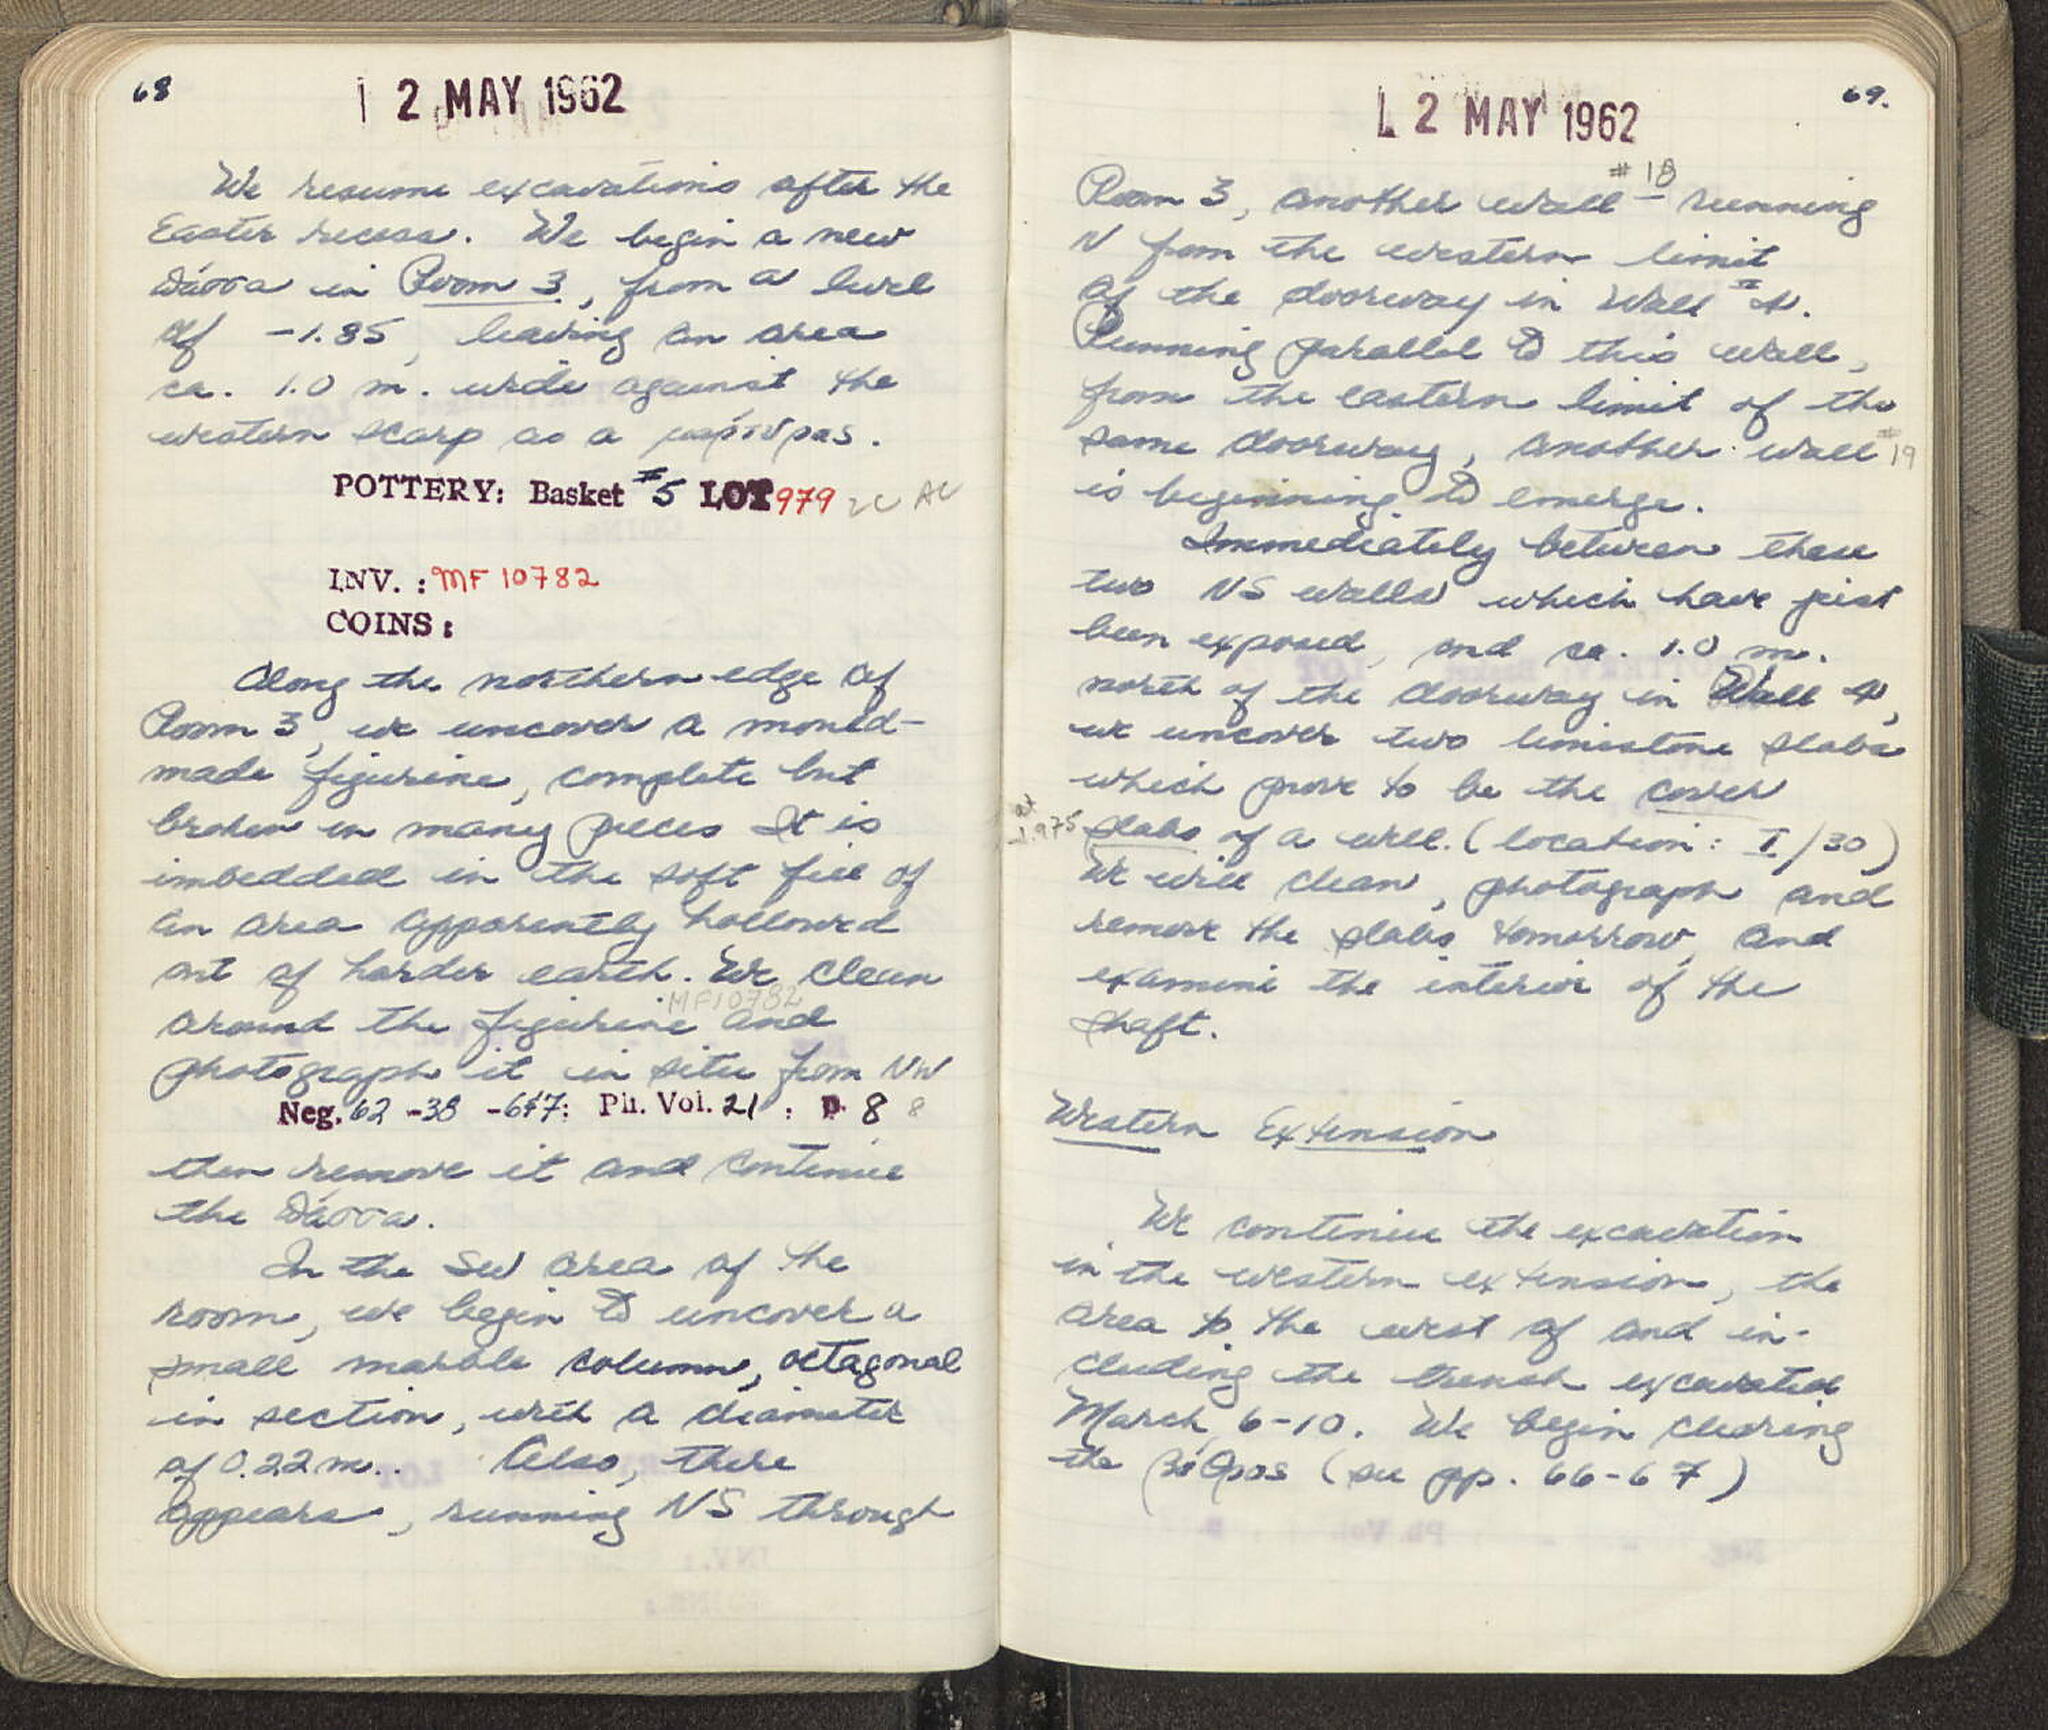 68
2 MAY 1962
We resume excavations after the
Easter recess. We begin a new
πάσσα in Room 3, from a level
of -1.85, leaving an area
ca. 1.0 m. wide against the
western scarp as a μάρτυρας.
POTTERY: Basket #5 LOT 979
INV.: MF 10782
COINS:
Along the northern edge of
Room 3, we uncover a mould-
made figurine, complete but
broken in many pieces It is
imbedded in the soft fill of
an area apparently hollowed
out of harder earth. We clean
MF10782
around the figurine and
photograph it in situ from NW
Neg. 62 -38 -6&7: Ph. Vol. 21 : p. 8 8
then remove it and continue
the πάσσα.
In the SW area of the
room, we begin to uncover a
small marble column, octagonal
in section, with a diameter
of 0.22 m.. Also, there
appears, running NS through
69.
2 MAY 1962
#18
Room 3, another wall – running
N from the western limit
of the doorway in Wall #4.
Running parallel to this wall,
from the eastern limit of the
same doorway, another wall #19
is beginning to emerge.
Immediately between these
two NS walls which have just
been exposed, and ca. 1.0 m.
north of the doorway in Wall 4,
we uncover two limestone slabs
which prove to be the cover
at -1.975
slabs of a well. (location: I/30)
We will clean, photograph and
remove the slabs tomorrow, and
examine the interior of the
shaft.
Western Extension
We continue the excavation
in the western extension, the
area to the west of and in-
cluding the trench excavated
March 6-10. We begin clearing
the βόθρος (see pp. 66-67)